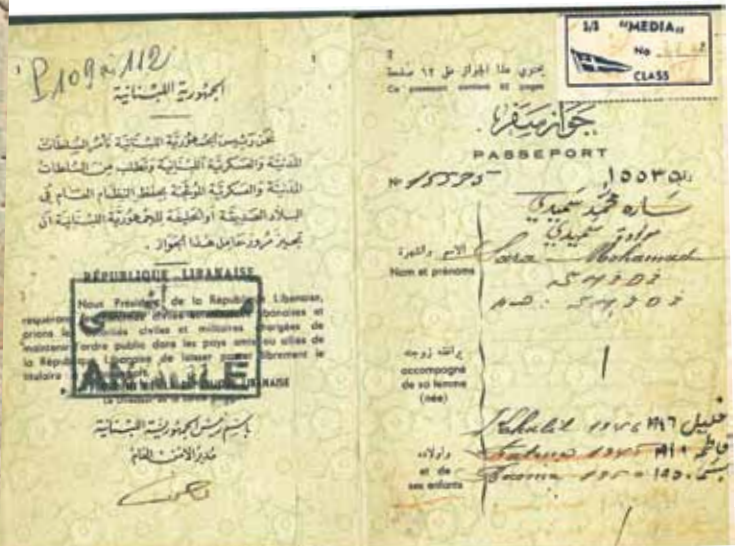 P109 à 112
1
الجمهورية اللبنانية
نحن رئيس الجمهورية اللبنانية نأمر السلطات
المدنية والعسكرية اللبنانية ونطلب من السلطات
المدنية والعسكرية الموقجة بحفظ النظام العام في
البلاد الصديقة أو الحليفة للجمهورية اللبنانية أن
تجيز مرور حامل هذا الجواز .
RÉPUBLIQUE LIBANAISE
Nous Président de la République Libanaise,
requérons civiles libanaises et
prions les autorités civiles et militaires chargées de
maintenir ordre public dans les pays amis ou alliés de
la République Libanaise de laisser passer librement le
titulaire
LIBANAISE
ملغى
ANNULÉ
باسم رئيس الجمهورية اللبنانية
مدير الأمن العام
2
S/S "MEDIA"
No
CLASS
يحتوي هذا الجواز على ١٢ صفحة
Ce passeport contient pages
جواز سفر
PASSEPORT
No 15535 رقم ١٥٥٣٥
ساره محمد
الاسم والشهرة Sara Mohamad
Nom et prénoms
يرافقه زوجه
accompagné
de sa femme
(née)
Khalil 1946 ١٩٤٦ خليل
وأولاده Fatima 1948 ١٩٤٨ فاطمة
et de 1950 ١٩٥٠
ses enfants